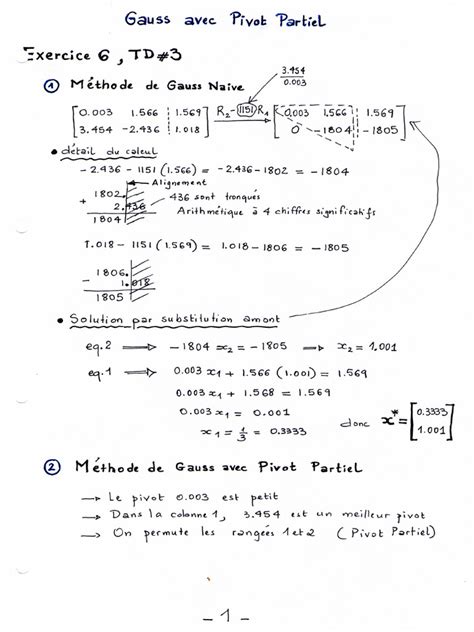 Gauss avec Pivot Partiel
Exercice 6, TD#3
① Méthode de Gauss Naive
3.454
0.003
[0.003 1.566 | 1.569] R2-(1151)R1 → [0.003 1.566 | 1.569]
[3.454 -2.436 | 1.018] [0 -1804 | -1805]
• détail du calcul
- 2.436 - 1151 (1.566) = -2.436 - 1802 = -1804
← Alignement
1802.
436 sont tronqués
+ 2.436
Arithmétique à 4 chiffres significatifs
1804
1.018 - 1151 (1.569) = 1.018 - 1806 = -1805
1806.
- 1.018
1805
• Solution par substitution amont
eq.2 ⟹ -1804 x2 = -1805 → x2 = 1.001
eq.1 ⟹ 0.003 x1 + 1.566 (1.001) = 1.569
0.003 x1 + 1.568 = 1.569
0.003 x1 = 0.001
x1 = 1/3 = 0.3333
donc x* = [0.3333
1.001]
② Méthode de Gauss avec Pivot Partiel
→ Le pivot 0.003 est petit
→ Dans la colonne 1, 3.454 est un meilleur pivot
→ On permute les rangées 1 et 2 (Pivot Partiel)
- 1 -